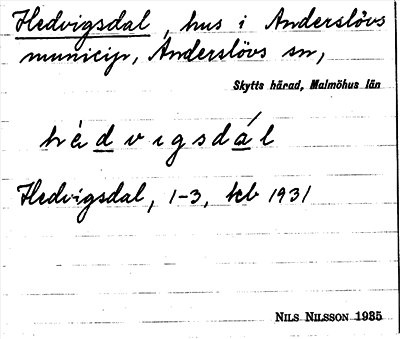 Hedvigsdal, hus i Anderslövs
municip, Anderslövs sn,
Skytts härad, Malmöhus län
hèdvigsdál
Hedvigsdal, 1-3, kb 1931
NILS NILSSON 1935